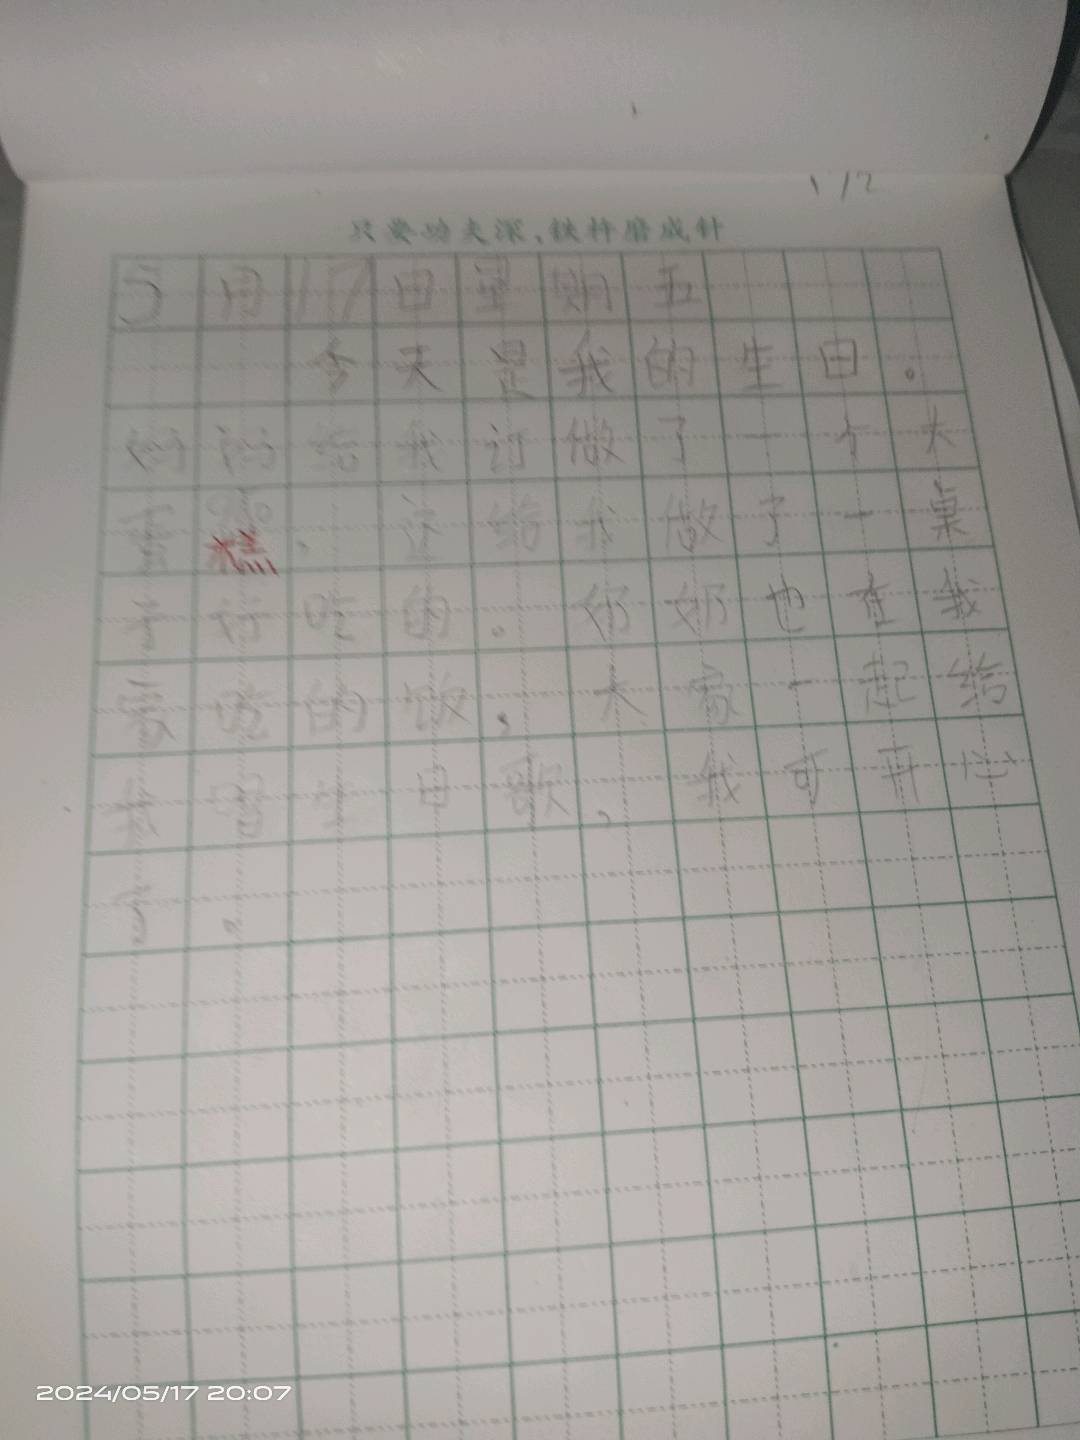 只要功夫深,铁杵磨成针
5月17日星期五
今天是我的生日。
妈妈给我订做了一个大
蛋糕、还给我做了一桌
子好吃的。奶奶也在我
家吃的饭,大家一起给
我唱生日歌,我可开心
了。
2024/05/17 20:07